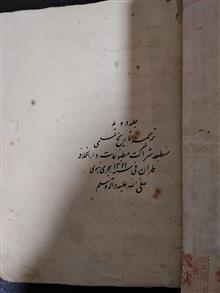 جلد دوم
ترجمه تاریخ
مطبعه شراکت مطبوعات دار الخلافه
طهران فی سنه ۱۳۲۱ هجری نبوی
صلی الله علیه وآله وسلم